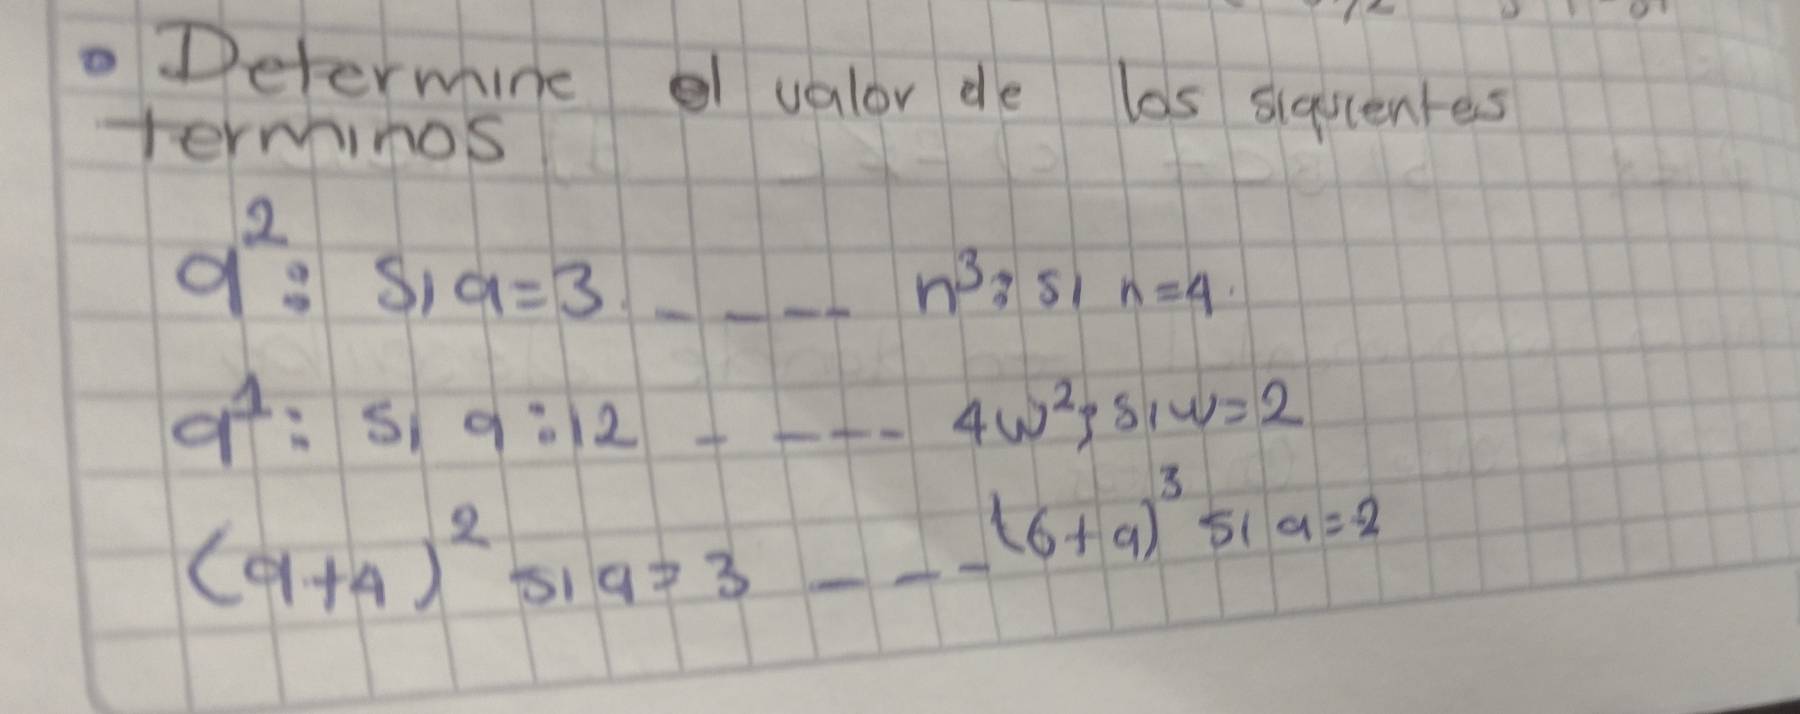 Determine el valor de los siguientes
terminos
a²: si a=3. ---- n³: si n=4.
a¹: si a:12 ---- 4w²; si w=2
(a+4)² si a=3 --- (6+a)³ si a=2